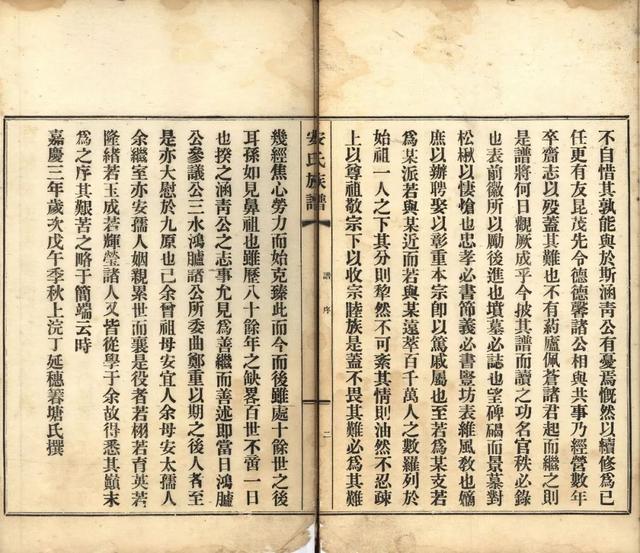 不自惜其孰能與於斯涵靑公有憂焉慨然以續修為已
任更有友昆茂先令德德馨諸公相與共事乃經營數年
卒齋志以歿蓋其難也不有葯廬佩蒼諸君起而繼之則
是譜將何日觀厥成乎今披其譜而讀之功名官秩必錄
也表前徽所以勵後進也墳墓必誌也望碑碣而景墓對
松楸以悽愴也忠孝必書節義必書豎坊表維風教也嫡
庶以辦聘娶以彰重本宗卽以篤戚屬也至若為某支若
為某派若與某近而若與某遠萃百千萬人之數羅列於
始祖一人之下其分則犁然不可紊其情則油然不忍疎
上以尊祖敬宗下以收宗睦族是蓋不畏其難必為其難
安氏族譜
譜序
二
幾經焦心勞力而始克臻此而今而後雖處十餘世之後
耳孫如見鼻祖也雖歷八十餘年之缺畧百世不啻一日
也揆之涵靑公之志事允見為善繼而善述即當日鴻臚
公參議公三水鴻臚諸公所委曲鄭重以期之後人者至
是亦大慰於九原也已余曾祖母安宜人余母安太孺人
余繼室亦安孺人姻親累世而襄是役者若栩若育英若
隆緒若玉成若輝瑩諸人又皆從學于余故得悉其巔末
為之序其艱苦之略于簡端云時
嘉慶三年歲次戊午季秋上浣丁延穗篛塘氏撰